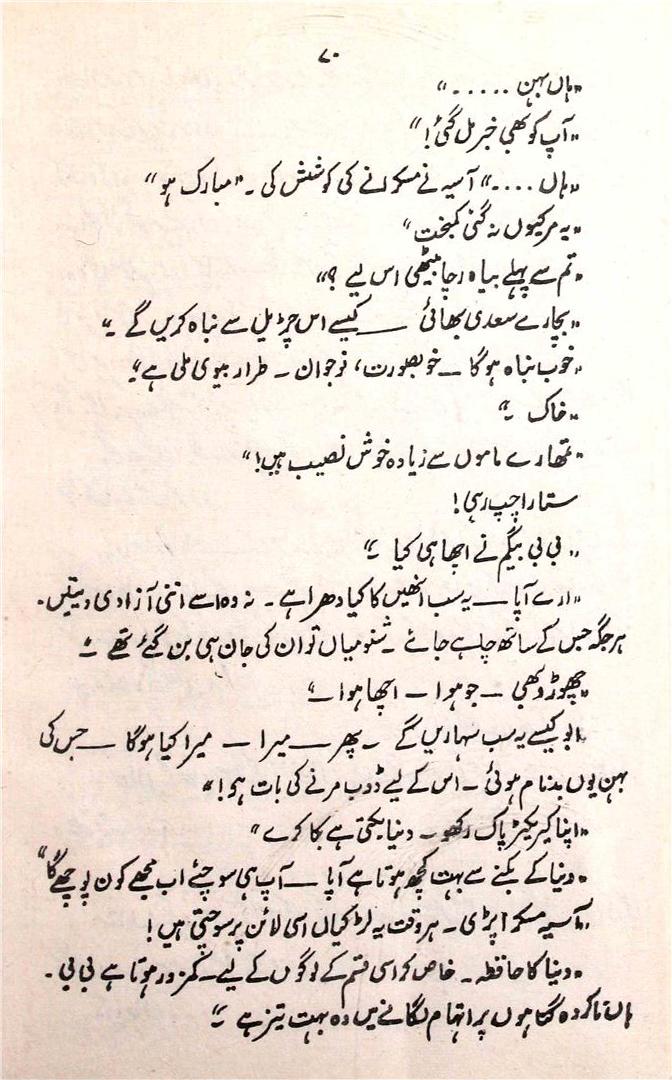 ۷۰
"ہاں بہن ....."
"آپ کو بھی خبر مل گئی!"
"ہاں ...." آسیہ نے مسکرانے کی کوشش کی۔ "مبارک ہو"
"یہ مرکیوں نہ گئی کمبخت"
"تم سے پہلے بیاہ رچا بیٹھی اس لیے؟"
"بچارے سعدی بھائی —— کیسے اس چڑیل سے نباہ کریں گے ۔"
"خوب نباہ ہوگا — خوبصورت، نوجوان ۔ طرار بیوی ملی ہے۔"
"خاک ۔"
"تمھارے ماموں سے زیادہ خوش نصیب ہیں!"
ستارا چپ رہی!
"بی بی بیگم نے اچھا ہی کیا ۔"
"ارے آپا —— یہ سب انھیں کا کیا دھرا ہے ۔ نہ وہ اسے اتنی آزادی دیتیں۔
ہر جگہ جس کے ساتھ چاہے جائے ۔ شنو میاں تو ان کی جان ہی بن گئے تھے ۔"
"چھوڑو بھی — جو ہوا — اچھا ہوا —"
"ابو کیسے یہ سب سہاریں گے ۔ پھر —— میرا — میرا کیا ہوگا —— جس کی
بہن یوں بدنام ہوئی ۔ اس کے لیے ڈوب مرنے کی بات ہو!"
"اپنا کریکٹر پاک رکھو۔ دنیا بکتی ہے بکا کرے"
"دنیا کے بکنے سے بہت کچھ ہوتا ہے آپا —— آپ ہی سوچئے اب مجھے کون پوچھے گا"
آسیہ مسکرا پڑی ۔ ہر وقت یہ لڑکیاں اسی لائن پر سوچتی ہیں!
"دنیا کا حافظہ ۔ خاص کر اسی قسم کے لوگوں کے لیے — کمزور ہوتا ہے بی بی ۔
ہاں ناکردہ گناہوں پر اتہام لگانے میں وہ بہت تیز ہے ۔"